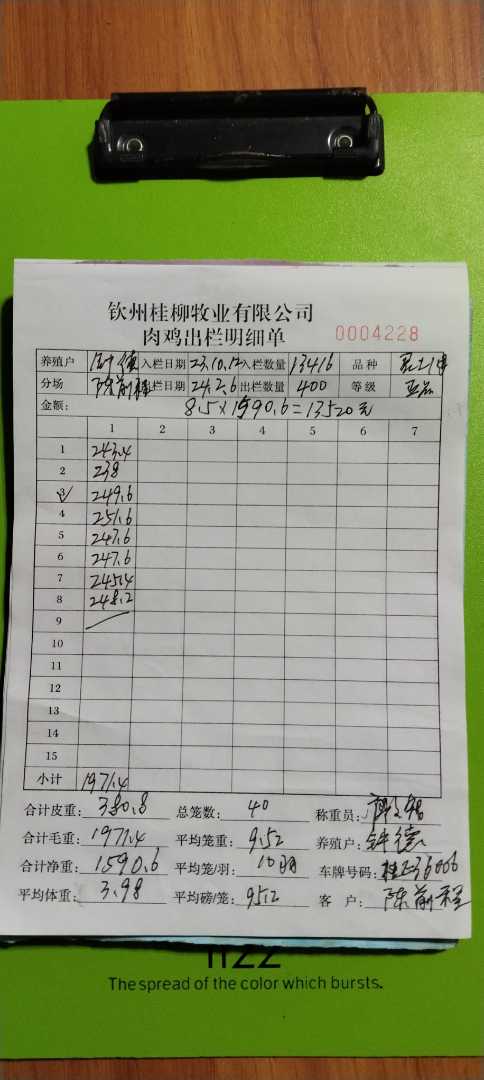 钦州桂柳牧业有限公司
肉鸡出栏明细单 0004228
养殖户 德 入栏日期 23.10.12 入栏数量 13416 品种
分场 陈前程 出栏日期 24.2.6 出栏数量 400 等级
金额: 8.5×1590.6=13520元
1 2 3 4 5 6 7
1 243.4
2 238
3 249.6
4 251.6
5 247.6
6 247.6
7 245.4
8 248.2
9
10
11
12
13
14
15
小计 1971.4
合计皮重: 380.8 总笼数: 40 称重员:
合计毛重: 1971.4 平均笼重: 9.52 养殖户: 德
合计净重: 1590.6 平均笼/羽: 10羽 车牌号码: 36006
平均体重: 3.98 平均磅/笼: 95.2 客户: 陈前程
nzz
The spread of the color which bursts.